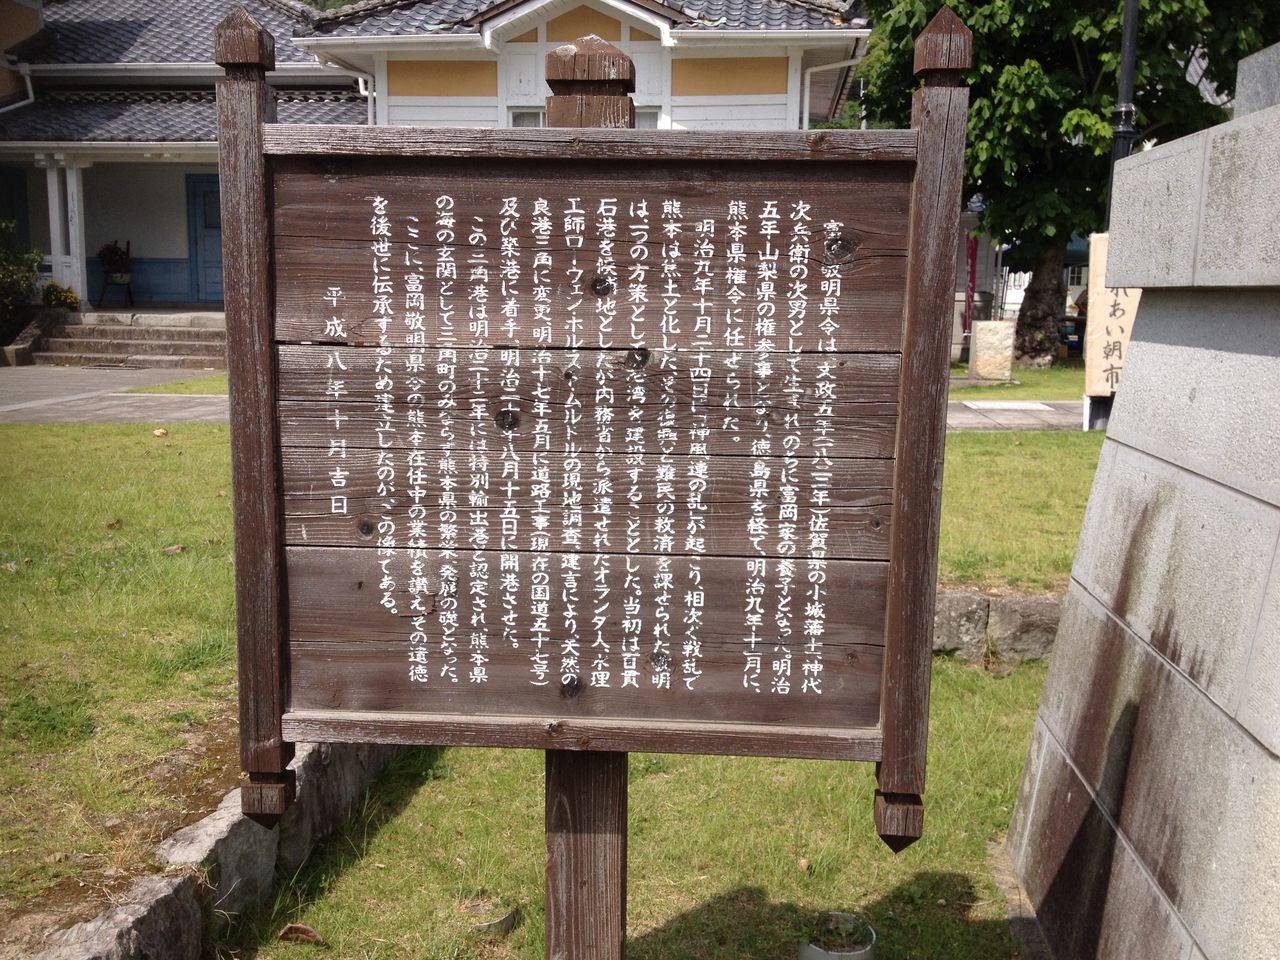 富 敬明県令は文政五年(一八二二年)佐賀県の小城藩士神代
次兵衛の次男として生まれ、のちに富岡家の養子となった。明治
五年山梨県の権参事となり、徳島県を経て、明治九年十一月に、
熊本県権令に任ぜられた。
明治九年十月二十四日に「神風連の乱」が起こり、相次ぐ戦乱で
熊本は焦土と化した。 難民の救済を課せられた敬明
は一つの方策として 港湾を建設することとした。当初は百貫
石港を候補地としたが、内務省から派遣せれたオランダ人、水理
工師ローウェンホルスト・ムルドルの現地調査、建言により、天然の
良港三角に変更、明治十七年五月に道路工事(現在の国道五十七号)
及び築港に着手、明治二十年八月十五日に開港させた。
この三角港は明治二十二年には特別輸出港と認定され、熊本県
の海の玄関として三角町のみならず熊本県の繁栄、発展の礎となった。
ここに、富岡敬明県令の熊本在任中の業績を讃え、その遺徳
を後世に伝承するため建立したのが、この像である。
平成八年十月吉日
れあい朝市